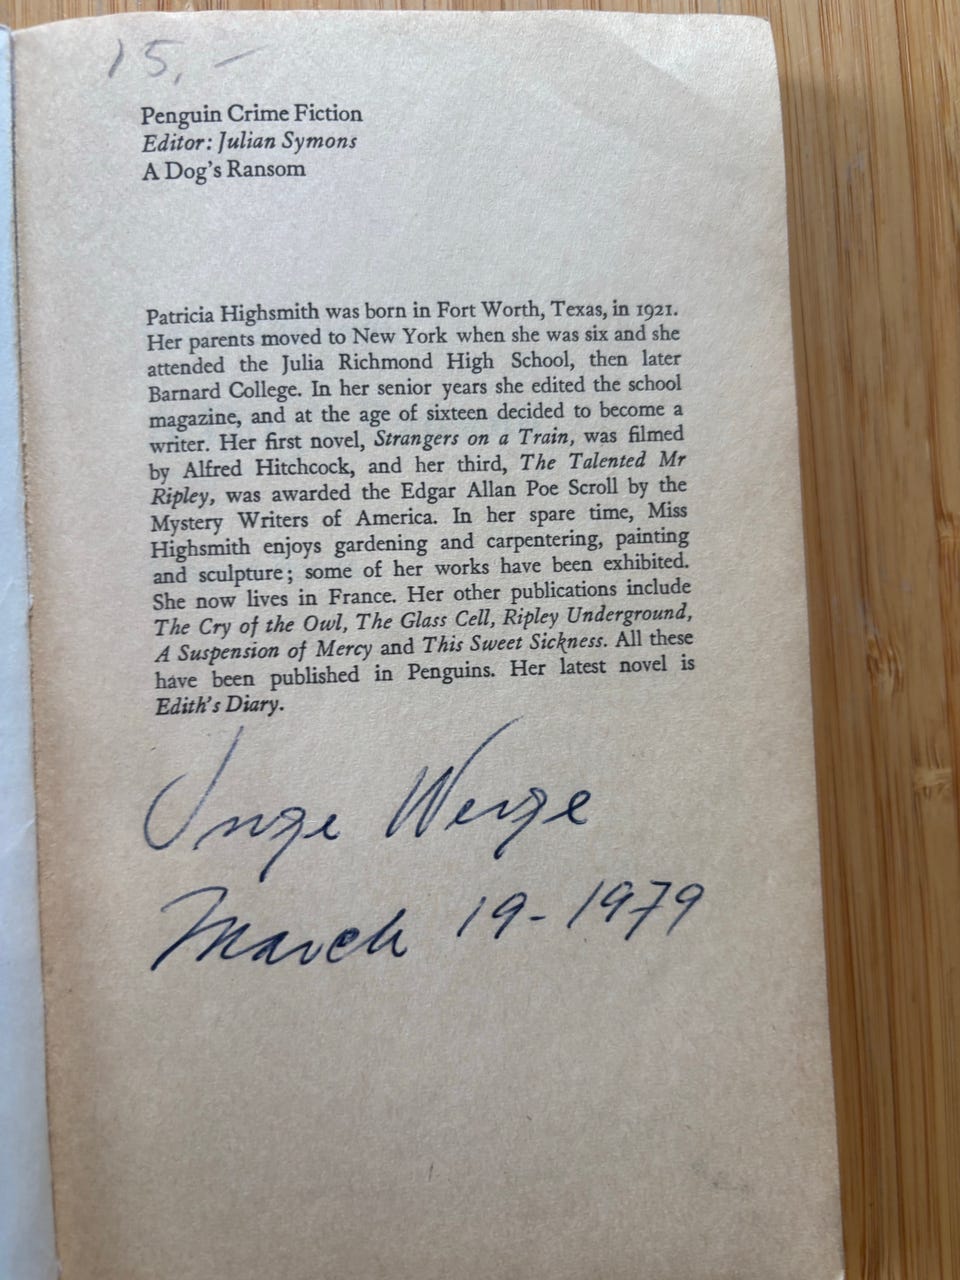 15,-
Penguin Crime Fiction
Editor: Julian Symons
A Dog's Ransom
Patricia Highsmith was born in Fort Worth, Texas, in 1921.
Her parents moved to New York when she was six and she
attended the Julia Richmond High School, then later
Barnard College. In her senior years she edited the school
magazine, and at the age of sixteen decided to become a
writer. Her first novel, Strangers on a Train, was filmed
by Alfred Hitchcock, and her third, The Talented Mr
Ripley, was awarded the Edgar Allan Poe Scroll by the
Mystery Writers of America. In her spare time, Miss
Highsmith enjoys gardening and carpentering, painting
and sculpture; some of her works have been exhibited.
She now lives in France. Her other publications include
The Cry of the Owl, The Glass Cell, Ripley Underground,
A Suspension of Mercy and This Sweet Sickness. All these
have been published in Penguins. Her latest novel is
Edith's Diary.
Inge Werge
March 19-1979